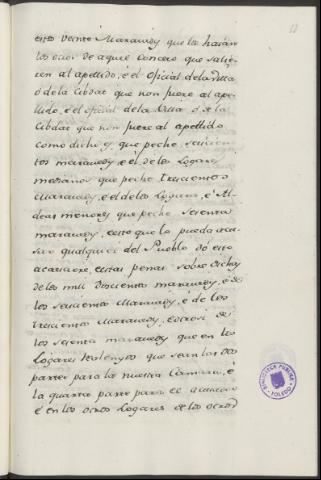 estos veinte Maravedis que los haian
los otros de aquel Concejo que salie-
ren al apellido, é el oficial de la Villa
ó de la Cibdat que non fuere al ape-
llido, é el oficial de la Villa ó de la
Cibdat que non fuere al apellido
como dicho es, que peche seiscien-
tos maravedis, é el de los Logares
medianos que peche trescientos
Maravedis, é el de los Logares, é Al-
deas menores que peche sesenta
maravedis, esto que lo pueda acu-
sar qualquier del Pueblo dó esto
acaeciere, é estas penas sobre dichas
de los mill doscientos maravedis, é de
los seiscientos Maravedis, é de los
trescientos Maravedis, é otrosi de
los sesenta maravedis que en los
Logares Realengos que sean las dos
partes para la nuestra Camara, é
la quarta parte para el acusador
é en los otros Logares de los otros
BIBLIOTECA PUBLICA
TOLEDO